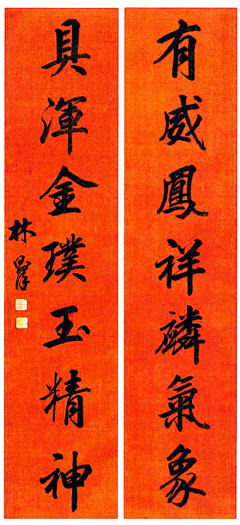 有威鳳祥磷氣象
具渾金璞玉精神
林